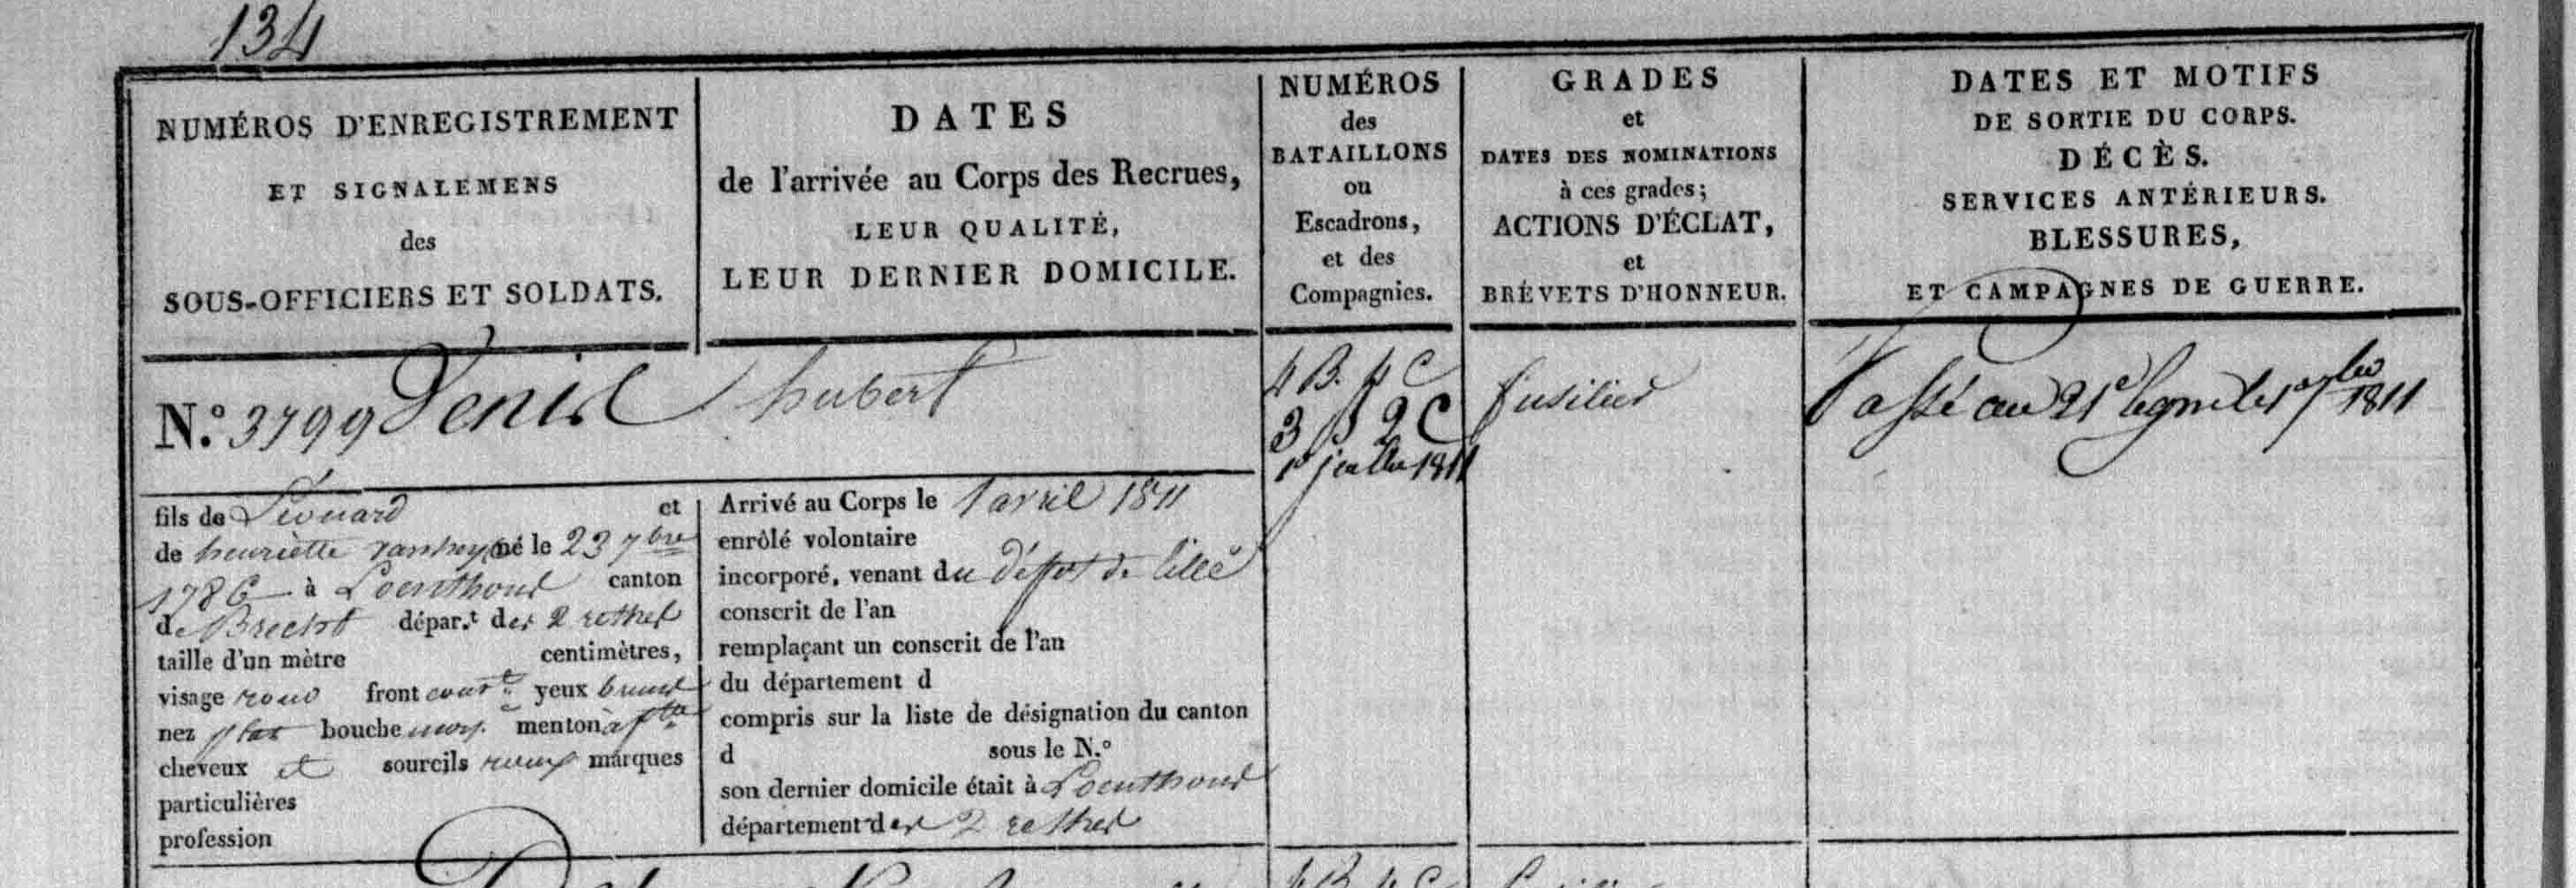 134
NUMÉROS D'ENREGISTREMENT
ET SIGNALEMENS
des
SOUS-OFFICIERS ET SOLDATS.
DATES
de l'arrivée au Corps des Recrues,
LEUR QUALITÉ,
LEUR DERNIER DOMICILE.
NUMÉROS
des
BATAILLONS
ou
Escadrons,
et des
Compagnies.
GRADES
et
DATES DES NOMINATIONS
à ces grades;
ACTIONS D'ÉCLAT,
et
BRÉVETS D'HONNEUR.
DATES ET MOTIFS
DE SORTIE DU CORPS.
DÉCÈS.
SERVICES ANTÉRIEURS.
BLESSURES,
ET CAMPAGNES DE GUERRE.
N.º 3799 Denis hubert
fils de Léonard et
de henriette né le 23 7bre
1786 à Loenthout canton
de Brecht dépar.t des 2 nethes
taille d'un mètre centimètres,
visage rond front couvt yeux bruns
nez plat bouche moy. menton
cheveux et sourcils roux marques
particulières
profession
Arrivé au Corps le 1 avril 1811
enrôlé volontaire
incorporé, venant du dépot de lille
conscrit de l'an
remplaçant un conscrit de l'an
du département d
compris sur la liste de désignation du canton
d sous le N.º
son dernier domicile était à Loenthout
département des 2 nethes
4 B. 4 C
3 B 2 C
1er juillet 1811
fusilier
Passé au 21e legrele 1er 7bre 1811
4 B 4 C